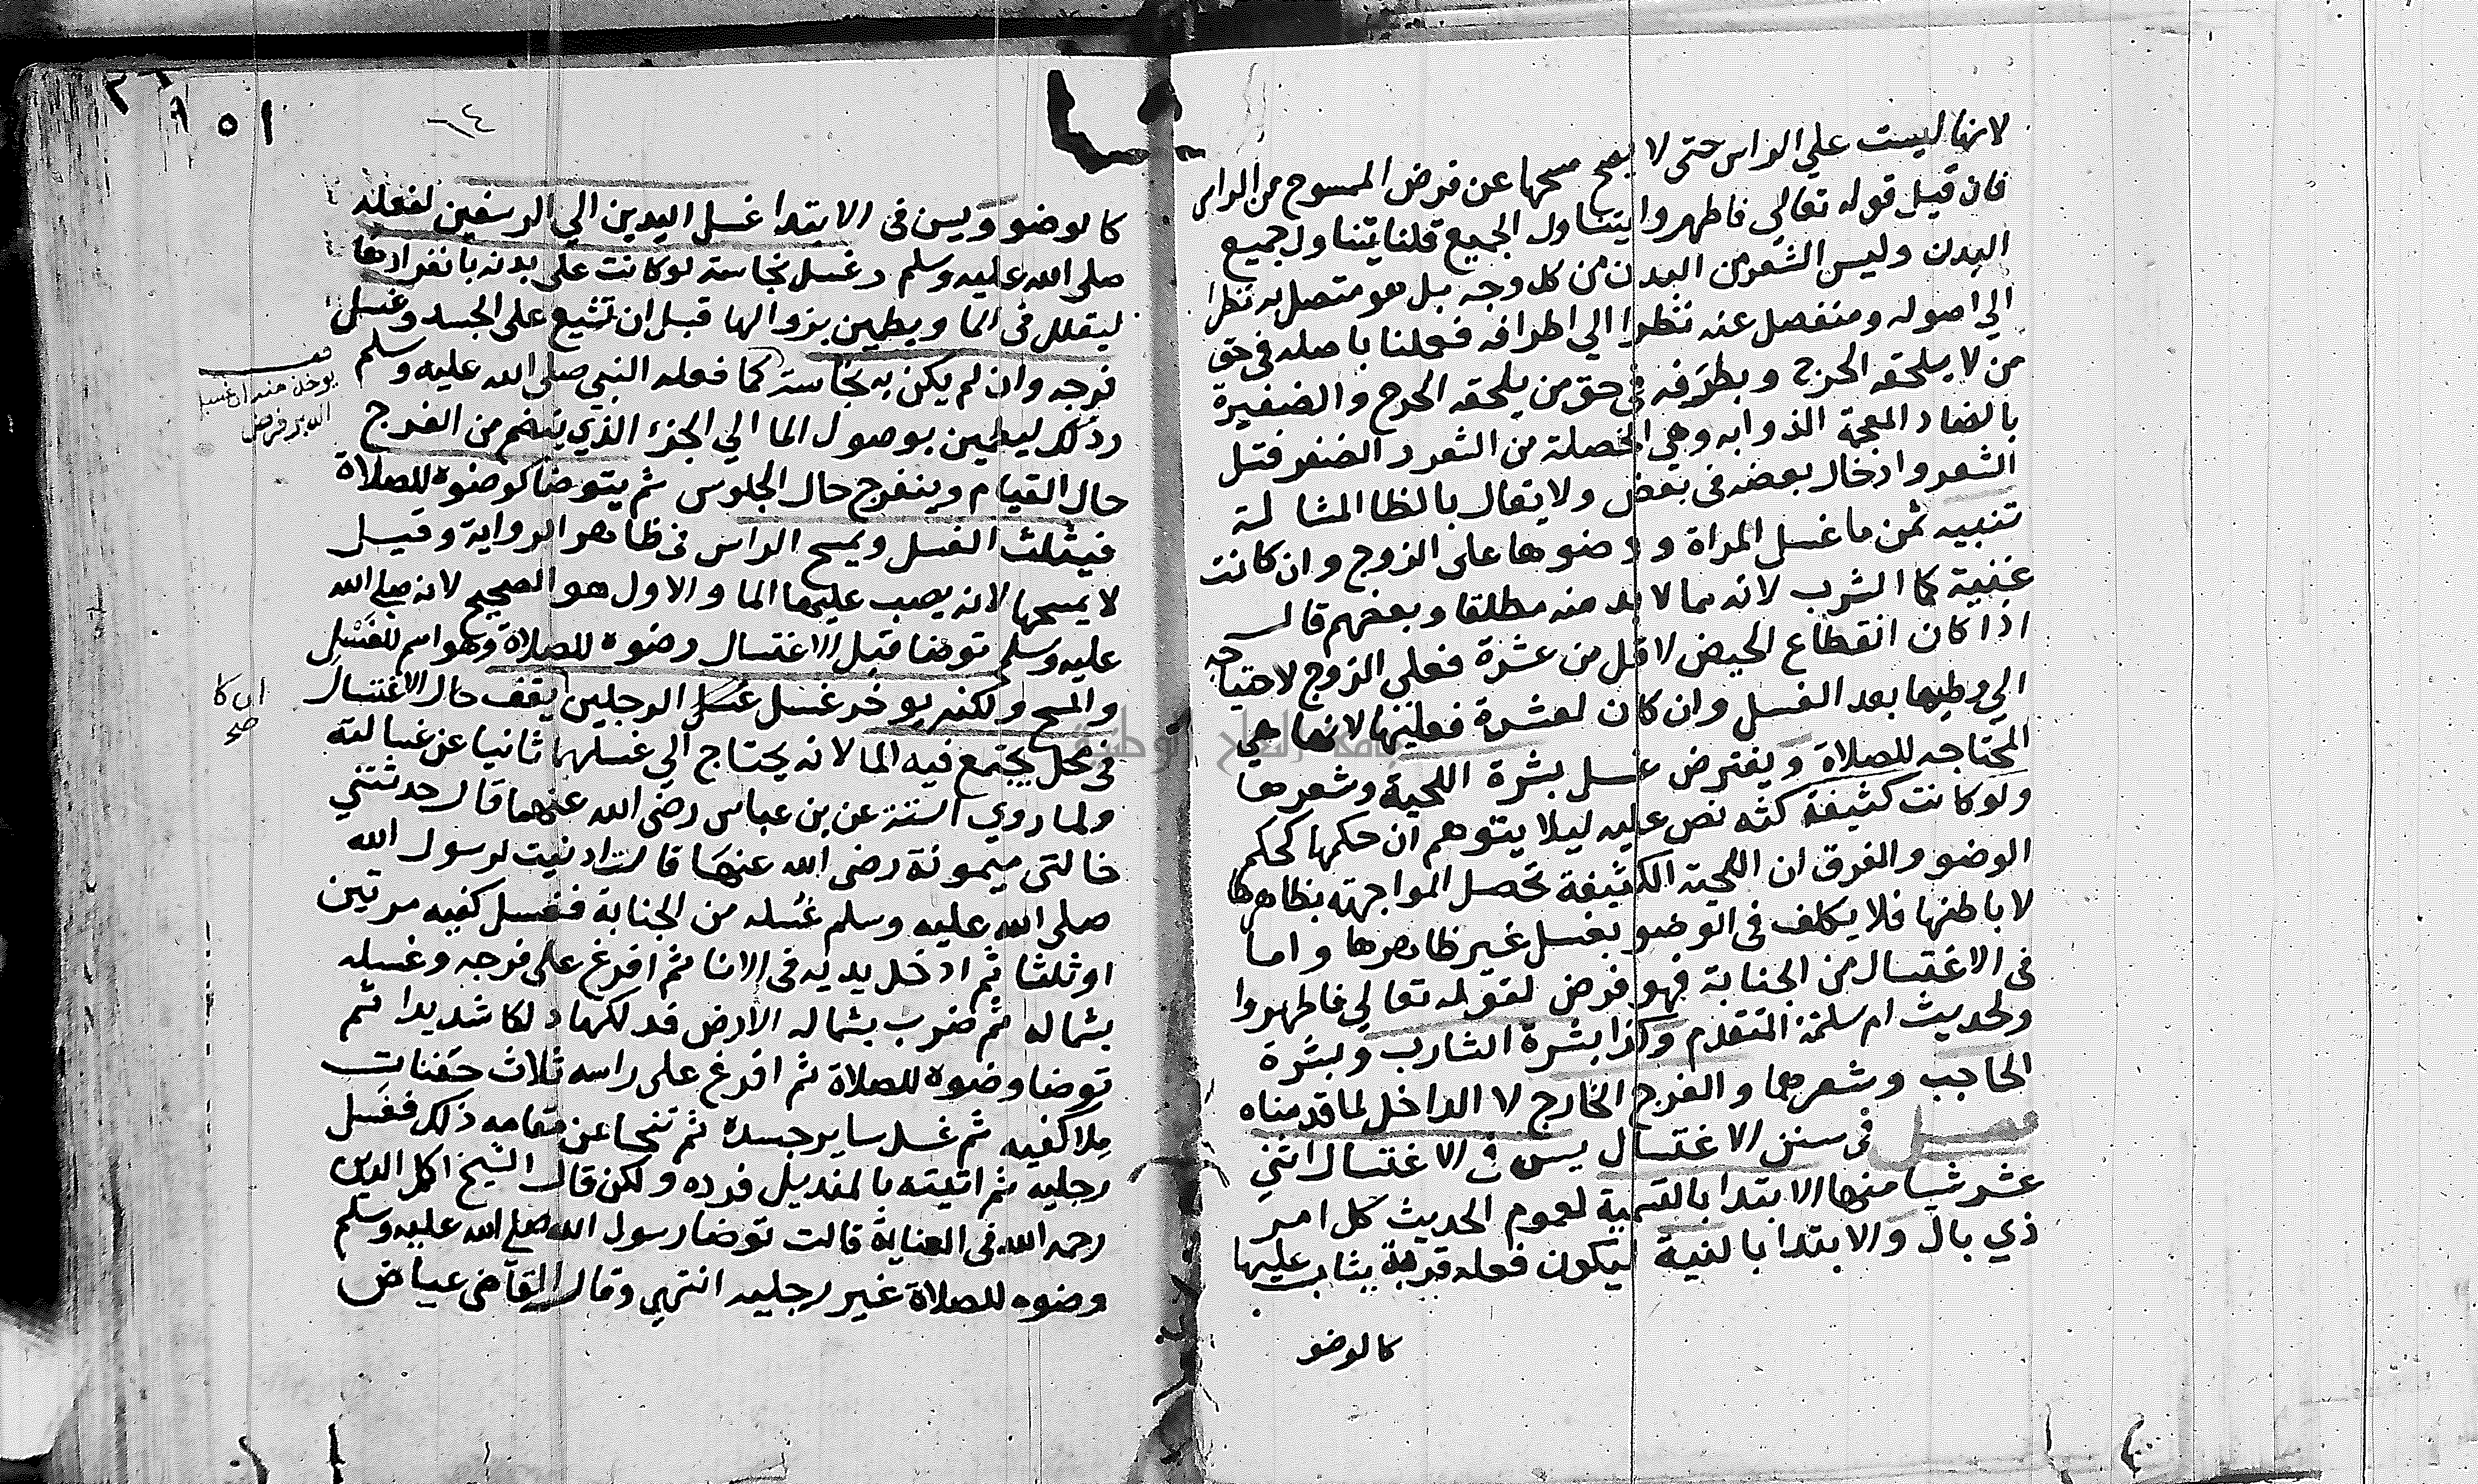 لانها ليست علي الراس حتى لا يصح مسحها عن فرض الممسوح من الراس
فان قيل قوله تعالي فاطهروا يتناول الجميع قلنا يتناول جميع
البدن وليس الشعر من البدن من كل وجه بل هو متصل به نظرا
الي اصوله ومنفصل عنه نظرا الي اطرافه فعملنا باصله في حق
من لا يلحقه الحرج وبطرفه في حق من يلحقه الحرج والضفيرة
بالضاد المعجمة الذوابه وهي الخصلة من الشعر والضفر فتل
الشعر وادخال بعضه في بعض ولا يقال بالظا المشالة
تنبيه ثمن ما غسل المراة ووضوها على الزوج وان كانت
غنية كما الشرب لانه مما لا بد منه مطلقا وبعضهم قال
اذا كان انقطاع الحيض لاقل من عشرة فعلى الزوج لاحتياجه
الي وطيها بعد الغسل وان كان لعشرة فعليها لانها هي
المحتاجه للصلاة ويفترض غسل بشرة اللحية وشعرها
ولو كانت كثيفة كثه نص عليه ليلا يتوهم ان حكمها كحكم
الوضو والفرق ان اللحية الكثيفة تحصل المواجهة بظاهرها
لا باطنها فلا يكلف في الوضو بغسل غير ظاهرها واما
في الاغتسال من الجنابة فهو فرض لقوله تعالي فاطهروا
ولحديث ام سلمة المتقدم وكذا بشرة الشارب وبشرة
الحاجب وشعرهما والفرج الخارج لا الداخل لما قدمناه
فصل في سنن الاغتسال يسن في الاغتسال اثني
عشر شيا منها الابتدا بالتسمية لعموم الحديث كل امر
ذي بال والابتدا بالنية ليكون فعله قربة يثاب عليها
كالوضو
١٥١
١٤
كالوضو ويسن في الابتدا غسل اليدين الي الرسغين لفعله
صلى الله عليه وسلم وغسل نجاسة لو كانت على بدنه بانفرادها
ليقلل في الما ويطمين بزوالها قبل ان تشيع على الجسد وغسل
فرجه وان لم يكن به نجاسة كما فعله النبي صلى الله عليه وسلم
وذلك ليطمين بوصول الما الي الجزء الذي ينضم من الفرج
حال القيام وينفرج حال الجلوس ثم يتوضا كوضوه للصلاة
فيثلث الغسل ويمسح الراس في ظاهر الرواية وقيل
لا يمسحها لانه يصب عليها الما والاول هو الصحيح لانه صلي الله
عليه وسلم توضا قبل الاغتسال وضوه للصلاة وهو اسم للغسل
والمسح ولكنه يوخر غسل غسل الرجلين يقف حال الاغتسال
في محل يجتمع فيه الما لانه يحتاج الي غسلهما ثانيا عن غسالته
ولما روي الستة عن بن عباس رضى الله عنهما قال حدثتني
خالتي ميمونة رضى الله عنها قالت ادنيت لرسول الله
صلى الله عليه وسلم غسله من الجنابة فغسل كفيه مرتين
او ثلثا ثم ادخل يديه في الانا ثم افرغ على فرجه وغسله
بشماله ثم ضرب بشماله الارض فدلكها دلكا شديدا ثم
توضا وضوه للصلاة ثم افرغ على راسه ثلاث حفنات
ملا كفيه ثم غسل ساير جسده ثم تنحا عن مقامه ذلك فغسل
رجليه ثم اتيته بالمنديل فرده ولكن قال الشيخ اكمل الدين
رحمه الله في العناية قالت توضا رسول الله صلي الله عليه وسلم
وضوه للصلاة غير رجليه انتهي وقال القاضى عياض
يوخذ منه ان غسل
الدبر فرض
ان كا
صح